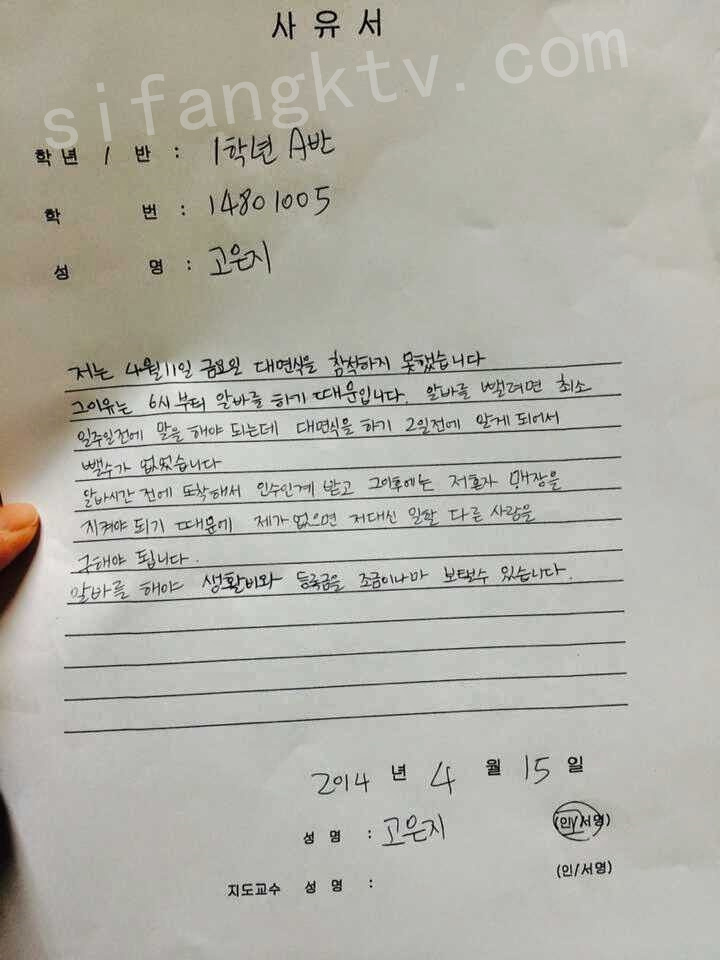 사 유 서
sifangktv.com
학년 / 반 : 1학년 A반
학 번 : 14801005
성 명 : 고은지
저는 4월11일 금요일 대면식을 참석하지 못했습니다
그이유는 6시 부터 알바를 하기 때문입니다. 알바를 뺄려면 최소
일주일전에 말을 해야 되는데 대면식을 하기 2일전에 알게 되어서
뺄수가 없었습니다
알바시간 전에 도착해서 인수인계 받고 그이후에는 저혼자 매장을
지켜야 되기 때문에 제가 없으면 저대신 일할 다른 사람을
구해야 됩니다.
알바를 해야 생활비와 등록금을 조금이나마 보탤수 있습니다.
2014 년 4 월 15 일
성 명 : 고은지 (인/서명)
지도교수 성 명 : (인/서명)